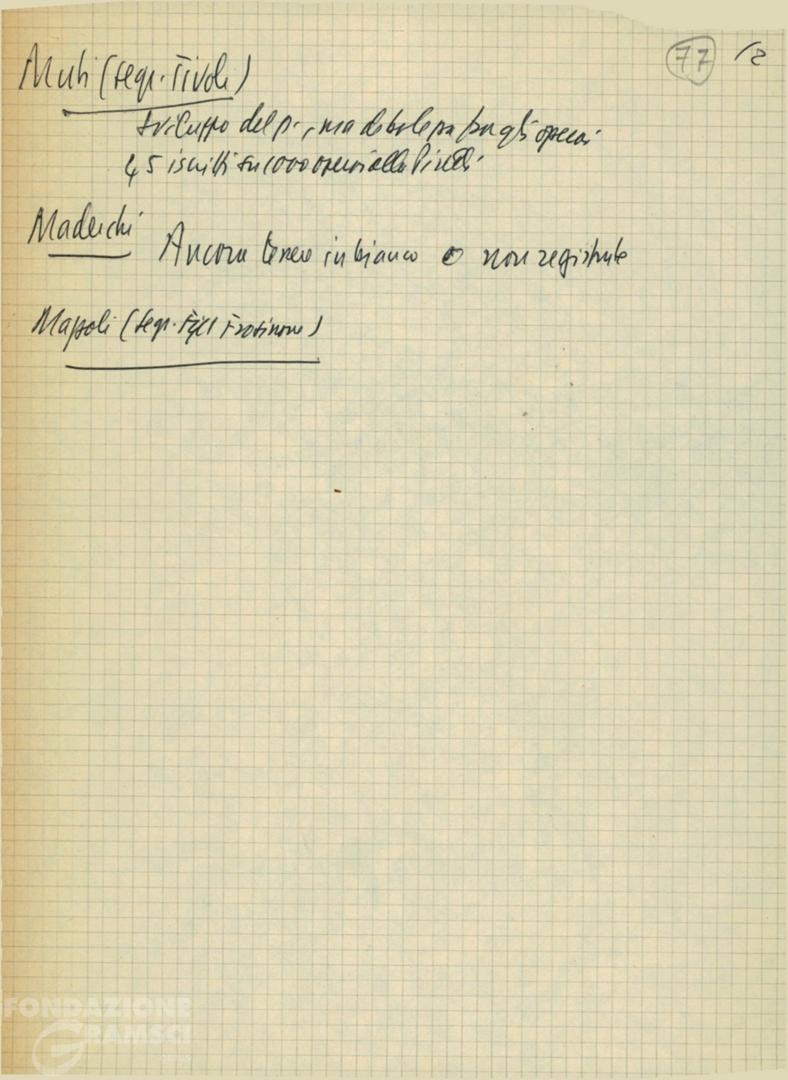 77 /2
Muti (segr. Tivoli)
Sviluppo del p., ma debolezza fra gli operai
45 iscritti su 1000 operai alla Pirelli
Maderchi Ancora tessere in bianco o non registrate
Mapoli (segr. Fgci Frosinone)
FONDAZIONE
GRAMSCI